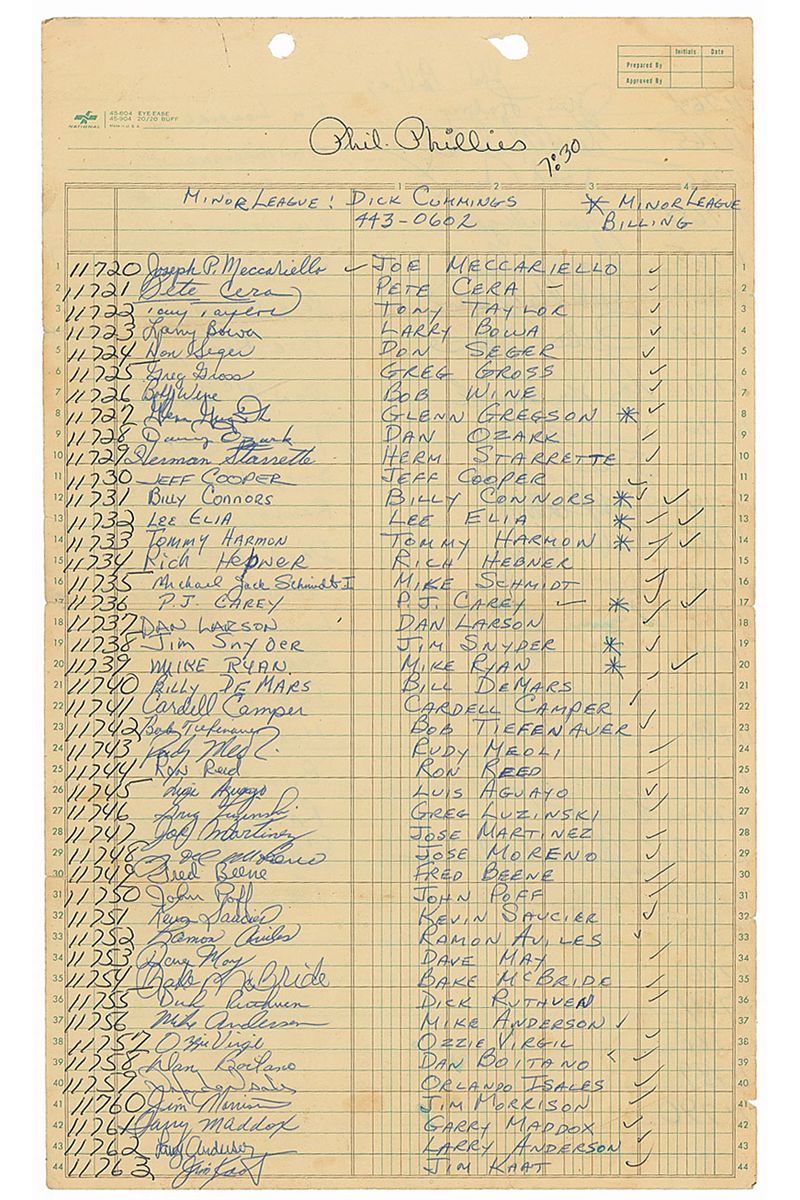 Initials Date
Prepared By
Approved By
NATIONAL 45-604 EYE-EASE
45-904 20/20 BUFF
Made in U.S.A.
Phil. Phillies 7:30
1 2 3 4
MINOR LEAGUE! DICK CUMMINGS * MINOR LEAGUE
443-0602 BILLING
1 11720 Joseph P. Meccariello ✓ JOE MECCARIELLO ✓ 1
2 11721 Pete Cera PETE CERA – ✓ 2
3 11722 Tony Taylor TONY TAYLOR ✓ 3
4 11723 Larry Bowa LARRY BOWA ✓ 4
5 11724 Don Seger DON SEGER ✓ 5
6 11725 Greg Gross GREG GROSS ✓ 6
7 11726 Bob Wine BOB WINE ✓ 7
8 11727 GLENN GREGSON * ✓ 8
9 11728 Danny Ozark DAN OZARK ✓ 9
10 11729 Herman Starrette HERM STARRETTE ✓ 10
11 11730 JEFF COOPER JEFF COOPER ✓ 11
12 11731 BILLY CONNORS BILLY CONNORS * ✓ ✓ 12
13 11732 LEE ELIA LEE ELIA * ✓ ✓ 13
14 11733 TOMMY HARMON TOMMY HARMON * ✓ ✓ 14
15 11734 Rich Hebner RICH HEBNER ✓ 15
16 11735 Michael Jack Schmidt I MIKE SCHMIDT ✓ 16
17 11736 P.J. CAREY P.J. CAREY ✓ * ✓ ✓ 17
18 11737 DAN LARSON DAN LARSON ✓ 18
19 11738 Jim SNyDER JIM SNYDER * ✓ 19
20 11739 MIKE RYAN. MIKE RYAN * ✓ 20
21 11740 BILLY DEMARS BILL DEMARS 21
22 11741 Cardell Camper CARDELL CAMPER ✓ 22
23 11742 Bob Tiefenauer BOB TIEFENAUER ✓ 23
24 11743 Rudy Meoli RUDY MEOLI ✓ 24
25 11744 Ron Reed RON REED ✓ 25
26 11745 Luis Aguayo LUIS AGUAYO ✓ 26
27 11746 Greg Luzinski GREG LUZINSKI ✓ 27
28 11747 Jose Martinez JOSE MARTINEZ ✓ 28
29 11748 Jose Moreno JOSE MORENO ✓ 29
30 11749 Fred Beene FRED BEENE ✓ 30
31 11750 John Poff JOHN POFF ✓ 31
32 11751 Kevin Saucier KEVIN SAUCIER ✓ 32
33 11752 Ramon Aviles RAMON AVILES ✓ 33
34 11753 Dave May DAVE MAY ✓ 34
35 11754 Bake McBRIDE BAKE McBRIDE ✓ 35
36 11755 Dick Ruthven DICK RUTHVEN ✓ 36
37 11756 Mike Anderson MIKE ANDERSON ✓ 37
38 11757 Ozzie Virgil OZZIE VIRGIL ✓ 38
39 11758 Dan Boitano DAN BOITANO ✓ 39
40 11759 ORLANDO ISALES ✓ 40
41 11760 Jim Morrison JIM MORRISON ✓ 41
42 11761 Garry Maddox GARRY MADDOX ✓ 42
43 11762 Larry Anderson LARRY ANDERSON ✓ 43
44 11763 Jim Kaat JIM KAAT ✓ 44